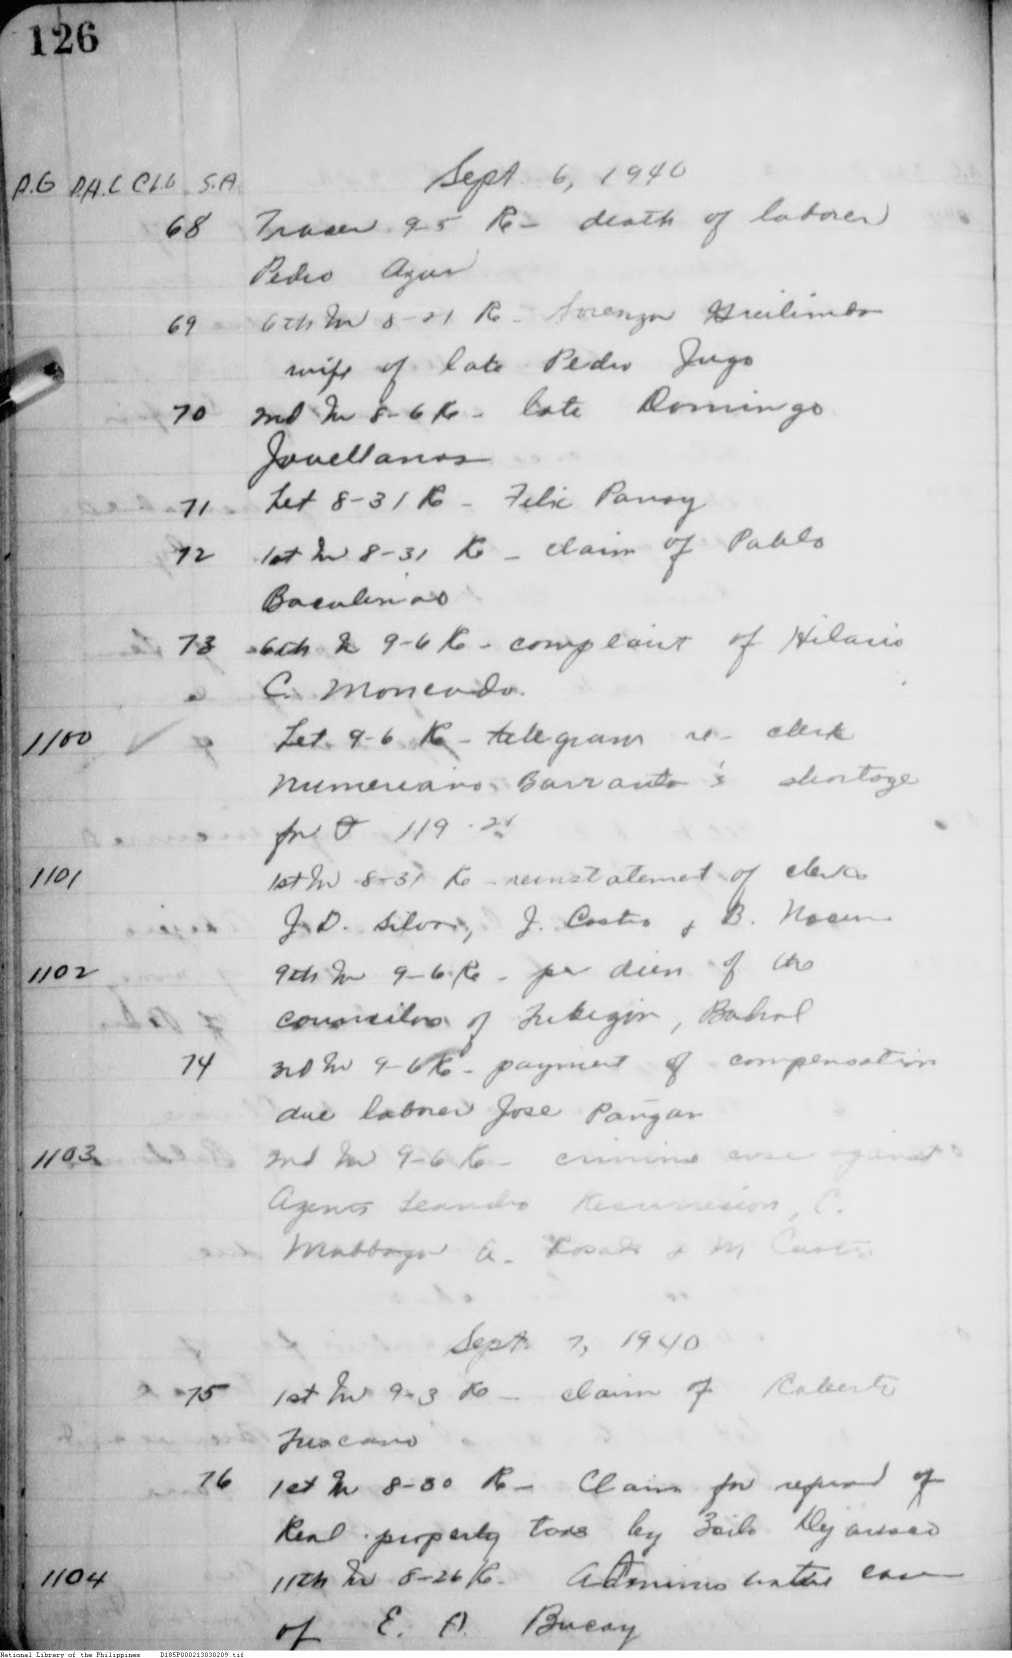 126
Sept. 6, 1940
P.G P.A.C C.L.G S.A.
68 Tracer 9-5 Re - death of laborer
Pedro Agur
69 6th In 8-21 Re - Lorenza
wife of late Pedro Jugo
70 2nd In 8-6 Re - late Domingo
Jovellanos
71 Let 8-31 Re - Felix Panoy
72 1st In 8-31 Re - claim of Pablo
Baculinao
73 6th In 9-6 Re - complaint of Hilario
C. Moncado.
1100 Let 9-6 Re - telegram re - clerk
Numeriano Barranta's shortage
for ₱ 119.21
1101 1st In 8-31 Re - reinstatement of clerks
J. D. Silva, J. Castro & B.
1102 9th In 9-6 Re - per diem of the
councilors of Tubigon, Bohol
74 3rd In 9-6 Re - payment of compensation
due laborer Jose Pangan
1103 2nd In 9-6 Re - criminal case against
Agents Leandro Resurreccion, C.
Mabbagu A. Rosado & M Castro
Sept. 7, 1940
75 1st In 9-3 Re - claim of Roberto
Tuscano
76 1st In 8-30 Re - Claim for refund of
Real property taxes by Zoilo
1104 11th In 8-26 Re - Administrative case
of E. A. Bucoy
National Library of the Philippines D185P000213030209.tif